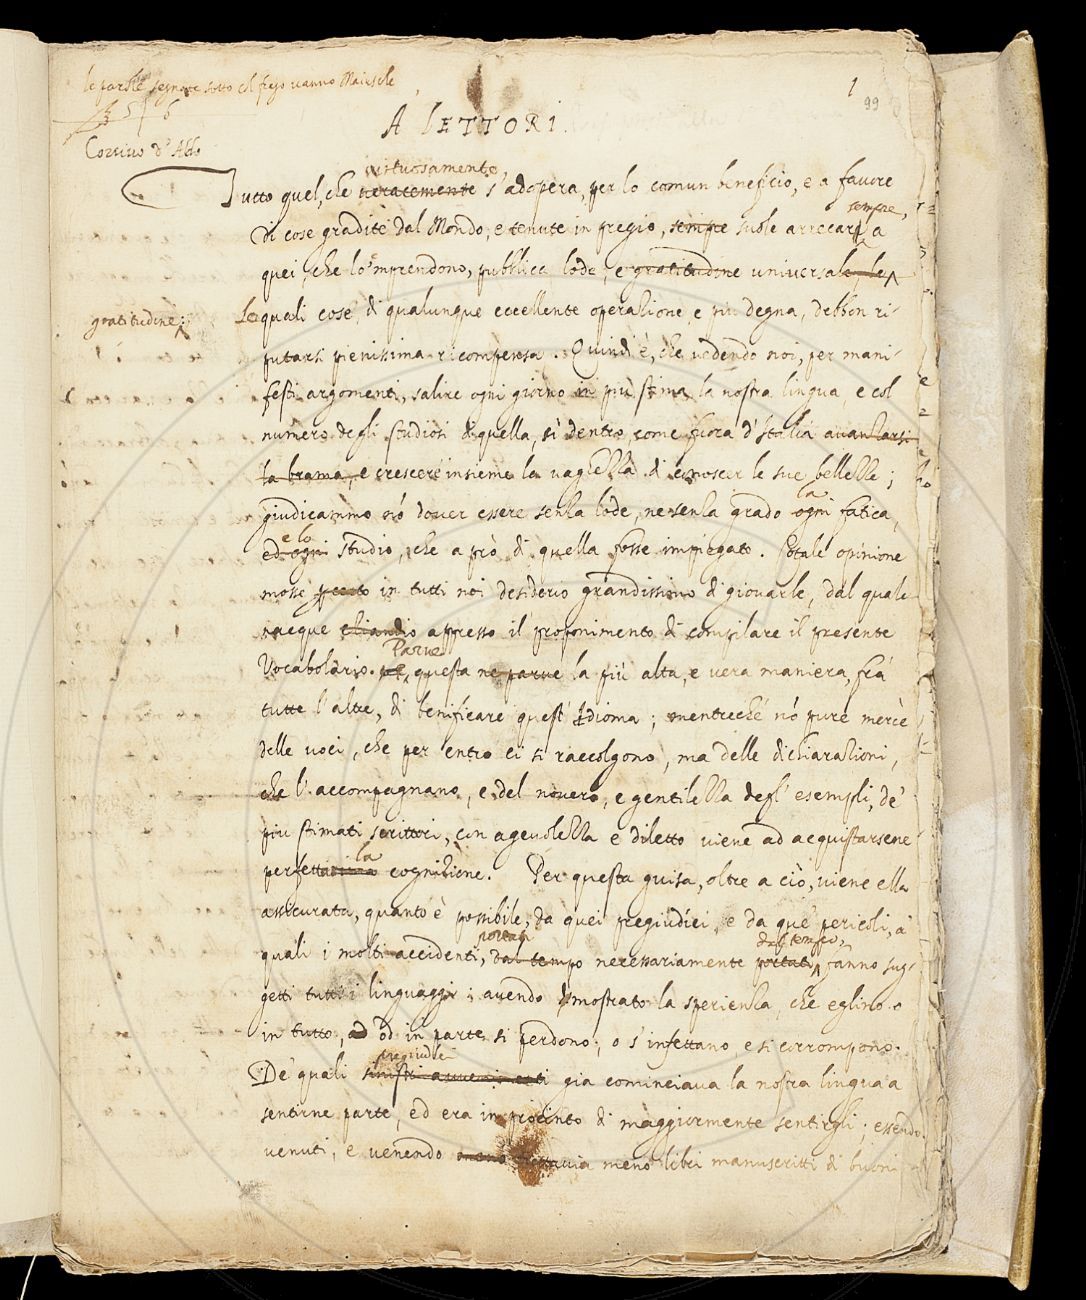 le parole segnate sotto col frego vanno Maiuscole
Corsivo d'Aldo
1
99
A LETTORI.
virtuosamente
Tutto quel, che veracemente s'adopera, per lo comun beneficio, e a favore
sempre,
di cose gradite dal Mondo, e tenute in pregio, sempre suole arrecarsi a
quei, che lo 'mprendono, pubblica lode, e gratitudine universale, le
gratitudine;
Le quali cose, di qualunque eccellente operazione, e più degna, debbon ri-
putarsi pienissima ricompensa. Quindi è, che vedendo noi, per mani-
festi argomenti, salire ogni giorno in più stima la nostra lingua, e col
numero degli studiosi di quella, sì dentro, come fuora d'Italia avanzarsi
la brama, e crescere insieme la vaghezza di conoscer le sue bellezze;
la
giudicammo nõ dover essere senza lode, ne senza grado ogni fatica,
e lo
ed ogni studio, che a prò di quella fosse impiegato. Cotale opinione
mosse in tutti noi desiderio grandissimo di giovarle, dal quale
nacque eziandio appresso il proponimento di compilare il presente
Parve
Vocabolario. questa ne parve la più alta, e vera maniera, frà
tutte l'altre, di benificare quest'Idioma; mentreché nõ pure mercè
delle voci, che per entro ci si raccolgono, ma delle dichiarazioni,
che l'accompagnano, e del novero, e gentilezza degl'esempli, de'
più stimati scrittori, con agevolezza e diletto viene ad acquistarsene
la
perfettissima cognizione. Per questa guisa, oltre a ciò, viene ella
assicurata, quanto è possibile, da quei pregiudici, e da que' pericoli, a'
portati
dal tempo,
quali i molti accidenti, dal tempo necessariamente portati, fanno sug-
getti tutti i linguaggi; avendo dimostrato la sperienza, che eglino o
in tutto, ad od in parte si perdono, o s'infettano, e si corrompono.
pregiudici
De' quali sinistri avvenimenti già cominciava la nostra lingua a
sentirne parte, ed era in procinto di maggiormente sentirgli; essendo
venuti, e venendo tuttavia meno libri manuscritti di buoni